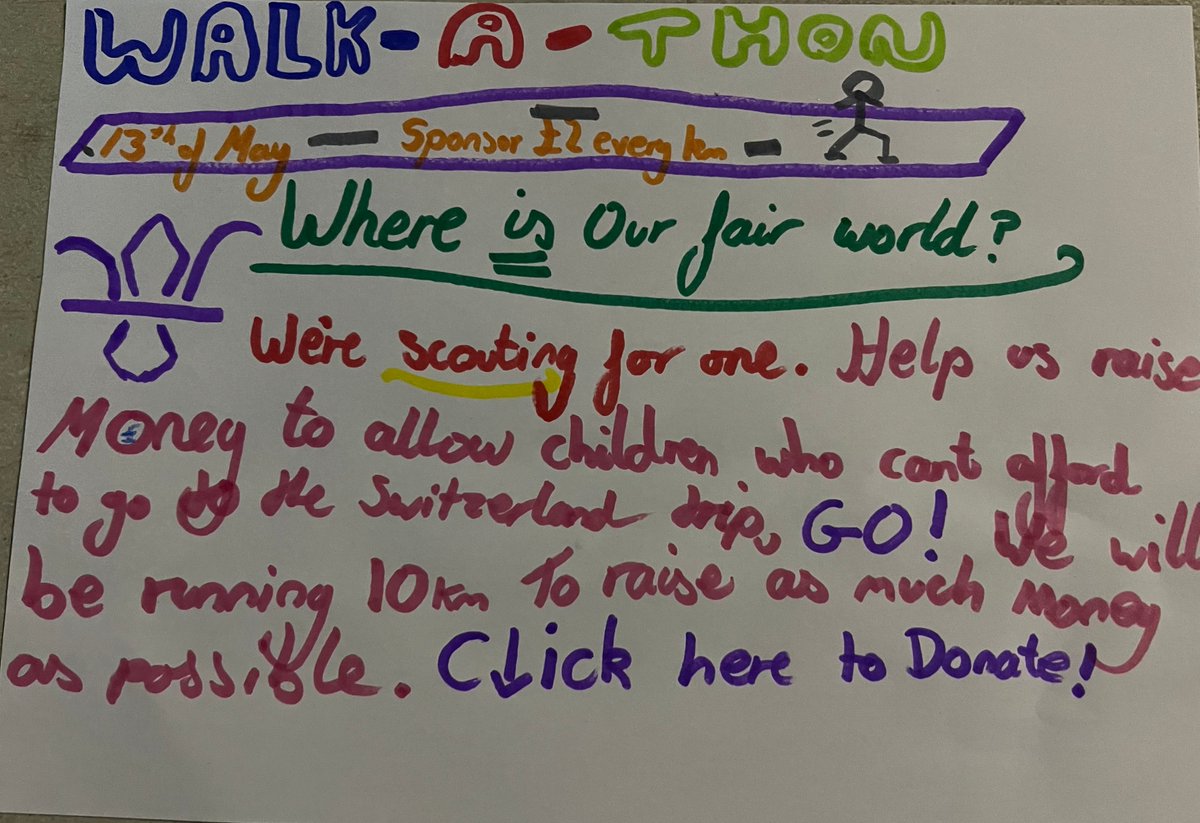 WALK-A-THON
13th of May — Sponsor £2 every km -
Where is Our fair world?
We're scouting for one. Help us raise
Money to allow children who cant afford
to go to the Switzerland trip, GO! We will
be running 10km To raise as much money
as possible. Click here to Donate!